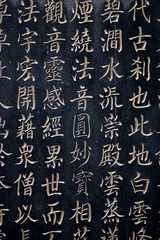 代古刹也此地白
碧澗水流崇殿雲蒸
煙繞法音圓妙寶相
觀音靈感經累世而
法宇宏開藉衆僧以